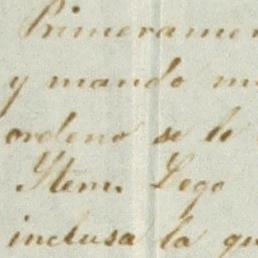 Primeramen
y mando m
ordeno se le
Ytem. Lego
inclusa la qu